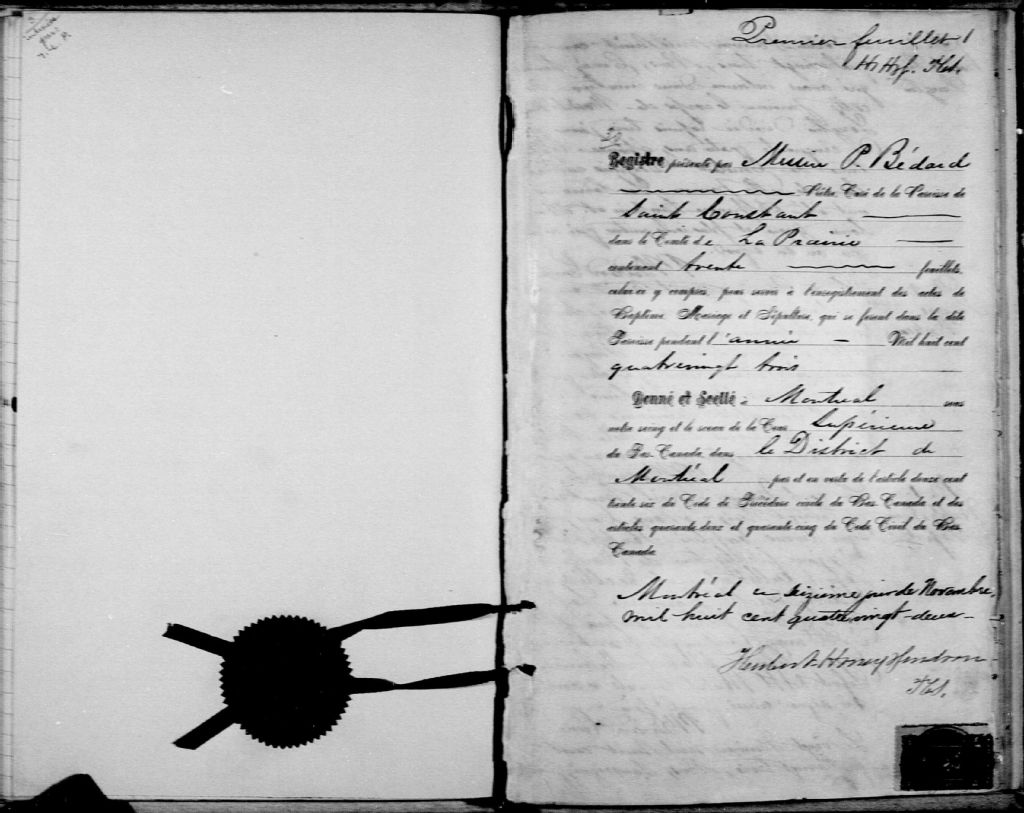 Premier feuillet 1
Registre présenté par Messire P. Bédard
Prêtre Curé de la Paroisse de
Saint Constant
dans le Comté de La Prairie
contenant trente feuillets,
celui-ci y compris, pour servir à l'enregistrement des actes de
Baptême, Mariage et Sépulture, qui se feront dans la dite
Paroisse pendant l'année Mil huit cent
quatrevingt trois
Donné et Scellé à Montréal sous
notre seing et le sceau de la Cour Supérieure
du Bas-Canada, dans le District de
Montréal par et en vertu de l'article douze cent
trente six du Code de Procédure civile du Bas-Canada et des
articles quarante-deux et quarante-cinq du Code Civil du Bas-
Canada
Montréal ce seizième jour de Novembre,
mil huit cent quatrevingt-deux-